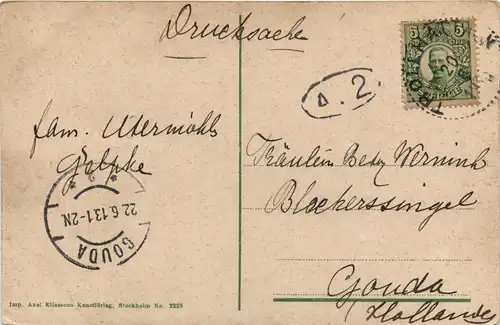 Drucksache
5 5
SVERIGE
△. 2.
fam. Utermöhl
Fräulein Betty Wernink
Blockerssingel
Gouda
Hollande
22.6.13 1-2N
GOUDA
Imp. Axel Eliassons Konstförlag, Stockholm No. 2228